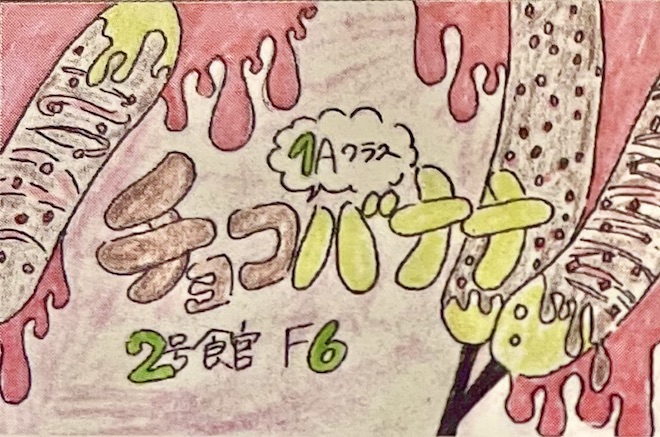 1Aクラス
チョコバナナ
2号館 F6